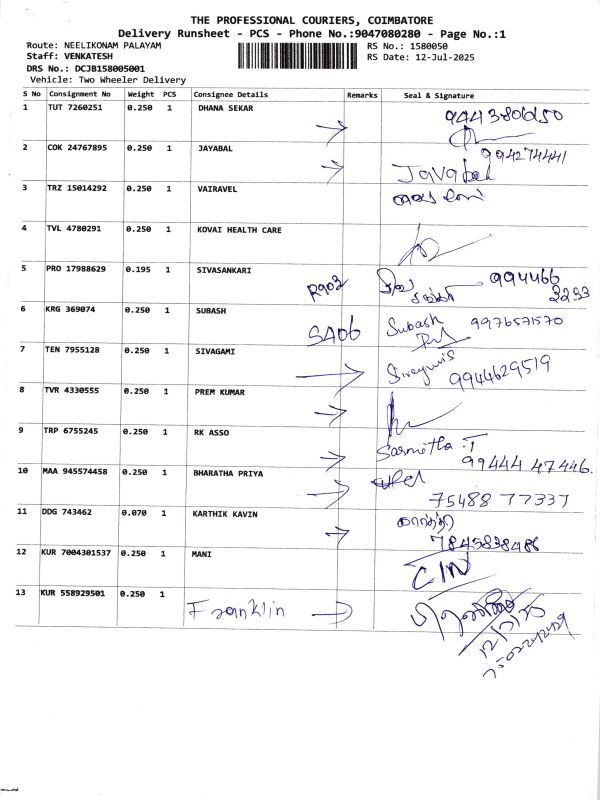 THE PROFESSIONAL COURIERS, COIMBATORE
Delivery Runsheet - PCS - Phone No.:9047080280 - Page No.:1
Route: NEELIKONAM PALAYAM RS No.: 1580050
Staff: VENKATESH RS Date: 12-Jul-2025
DRS No.: DCJB158005001
Vehicle: Two Wheeler Delivery
S No Consignment No Weight PCS Consignee Details Remarks Seal & Signature
1 TUT 7260251 0.250 1 DHANA SEKAR
2 COK 24767895 0.250 1 JAYABAL 994274441
3 TRZ 15014292 0.250 1 VAIRAVEL
4 TVL 4780291 0.250 1 KOVAI HEALTH CARE
5 PRO 17988629 0.195 1 SIVASANKARI 994466
3233
6 KRG 369074 0.250 1 SUBASH Subash 9976571570
7 TEN 7955128 0.250 1 SIVAGAMI 9944629519
8 TVR 4330555 0.250 1 PREM KUMAR
9 TRP 6755245 0.250 1 RK ASSO
99444 47446.
10 MAA 945574458 0.250 1 BHARATHA PRIYA
75488 77337
11 DDG 743462 0.070 1 KARTHIK KAVIN கார்த்தி
7845838486
12 KUR 7004301537 0.250 1 MANI
13 KUR 558929501 0.250 1 Franklin
12/7/25